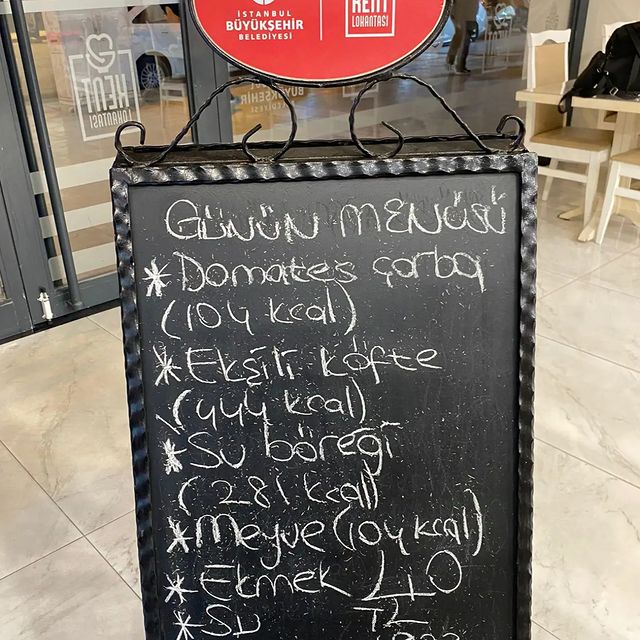 İSTANBUL
BÜYÜKŞEHİR
BELEDİYESİ
KENT
LOKANTASI
KENT
LOKANTASI
GÜNÜN MENÜSÜ
* Domates çorba
(104 kcal)
* Ekşili köfte
(444 kcal)
* Su böreği
(281 kcal)
* Meyve (104 kcal)
* Ekmek 40
* Su TL